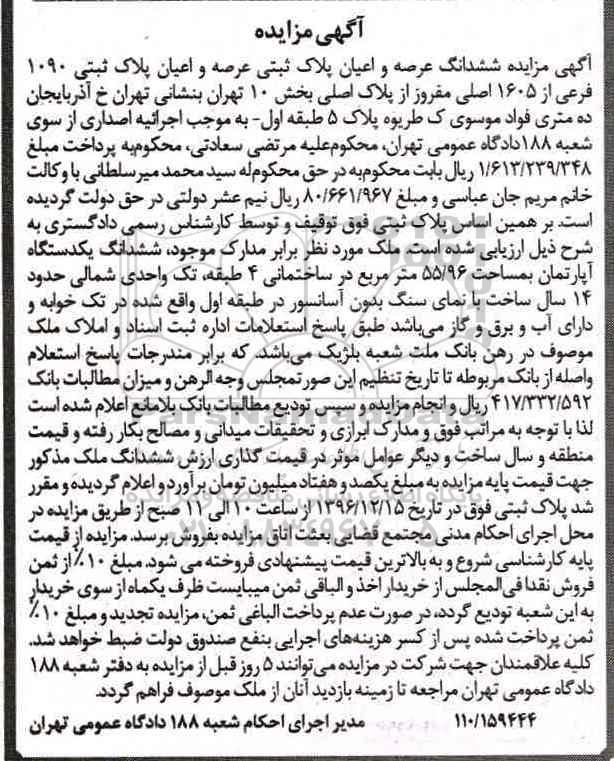 آگهی مزایده
آگهی مزایده ششدانگ عرصه و اعیان پلاک ثبتی عرصه و اعیان پلاک ثبتی ۱۰۹۰
فرعی از ۱۶۰۵ اصلی مفروز از پلاک اصلی بخش ۱۰ تهران بنشانی تهران خ آذربایجان
ده متری فواد موسوی ک طربوه پلاک ۵ طبقه اول- به موجب اجرائیه اصداری از سوی
شعبه ۱۸۸دادگاه عمومی تهران، محکوم‌علیه مرتضی سعادتی، محکوم‌به پرداخت مبلغ
۱/۶۱۳/۲۳۹/۳۴۸ ریال بابت محکوم‌به در حق محکوم‌له سید محمد میرسلطانی با وکالت
خانم مریم جان عباسی و مبلغ ۸۰/۶۶۱/۹۶۷ ریال نیم عشر دولتی در حق دولت گردیده
است. بر همین اساس پلاک ثبتی فوق توقیف و توسط کارشناس رسمی دادگستری به
شرح ذیل ارزیابی شده است. ملک مورد نظر برابر مدارک موجود، ششدانگ یکدستگاه
آپارتمان بمساحت ۵۵/۹۶ متر مربع در ساختمانی ۴ طبقه، تک واحدی شمالی حدود
۱۴ سال ساخت با نمای سنگ بدون آسانسور در طبقه اول واقع شده در تک خوابه و
دارای آب و برق و گاز می‌باشد طبق پاسخ استعلامات اداره ثبت اسناد و املاک ملک
موصوف در رهن بانک ملت شعبه بلژیک می‌باشد. که برابر مندرجات پاسخ استعلام
واصله از بانک مربوطه تا تاریخ تنظیم این صورتمجلس وجه الرهن و میزان مطالبات بانک
۴۱۷/۳۳۲/۵۹۲ ریال و انجام مزایده و سپس تودیع مطالبات بانک بلامانع اعلام شده است
لذا با توجه به مراتب فوق و مدارک ابرازی و تحقیقات میدانی و مصالح بکار رفته و قیمت
منطقه و سال ساخت و دیگر عوامل موثر در قیمت گذاری ارزش ششدانگ ملک مذکور
جهت قیمت پایه مزایده به مبلغ یکصد و هفتاد میلیون تومان برآورد و اعلام گردیده و مقرر
شد پلاک ثبتی فوق در تاریخ ۱۳۹۶/۱۲/۱۵ از ساعت ۱۰ الی ۱۱ صبح از طریق مزایده در
محل اجرای احکام مدنی مجتمع قضایی بعثت اتاق مزایده بفروش برسد. مزایده از قیمت
پایه کارشناسی شروع و به بالاترین قیمت پیشنهادی فروخته می شود. مبلغ ۱۰٪ از ثمن
فروش نقدا فی‌المجلس از خریدار اخذ و الباقی ثمن میبایست ظرف یکماه از سوی خریدار
به این شعبه تودیع گردد، در صورت عدم پرداخت الباغی ثمن، مزایده تجدید و مبلغ ۱۰٪
ثمن پرداخت شده پس از کسر هزینه‌های اجرایی بنفع صندوق دولت ضبط خواهد شد.
کلیه علاقمندان جهت شرکت در مزایده می‌توانند ۵ روز قبل از مزایده به دفتر شعبه ۱۸۸
دادگاه عمومی تهران مراجعه تا زمینه بازدید آنان از ملک موصوف فراهم گردد.
۱۱۰/۱۵۹۴۴۴ مدیر اجرای احکام شعبه ۱۸۸ دادگاه عمومی تهران